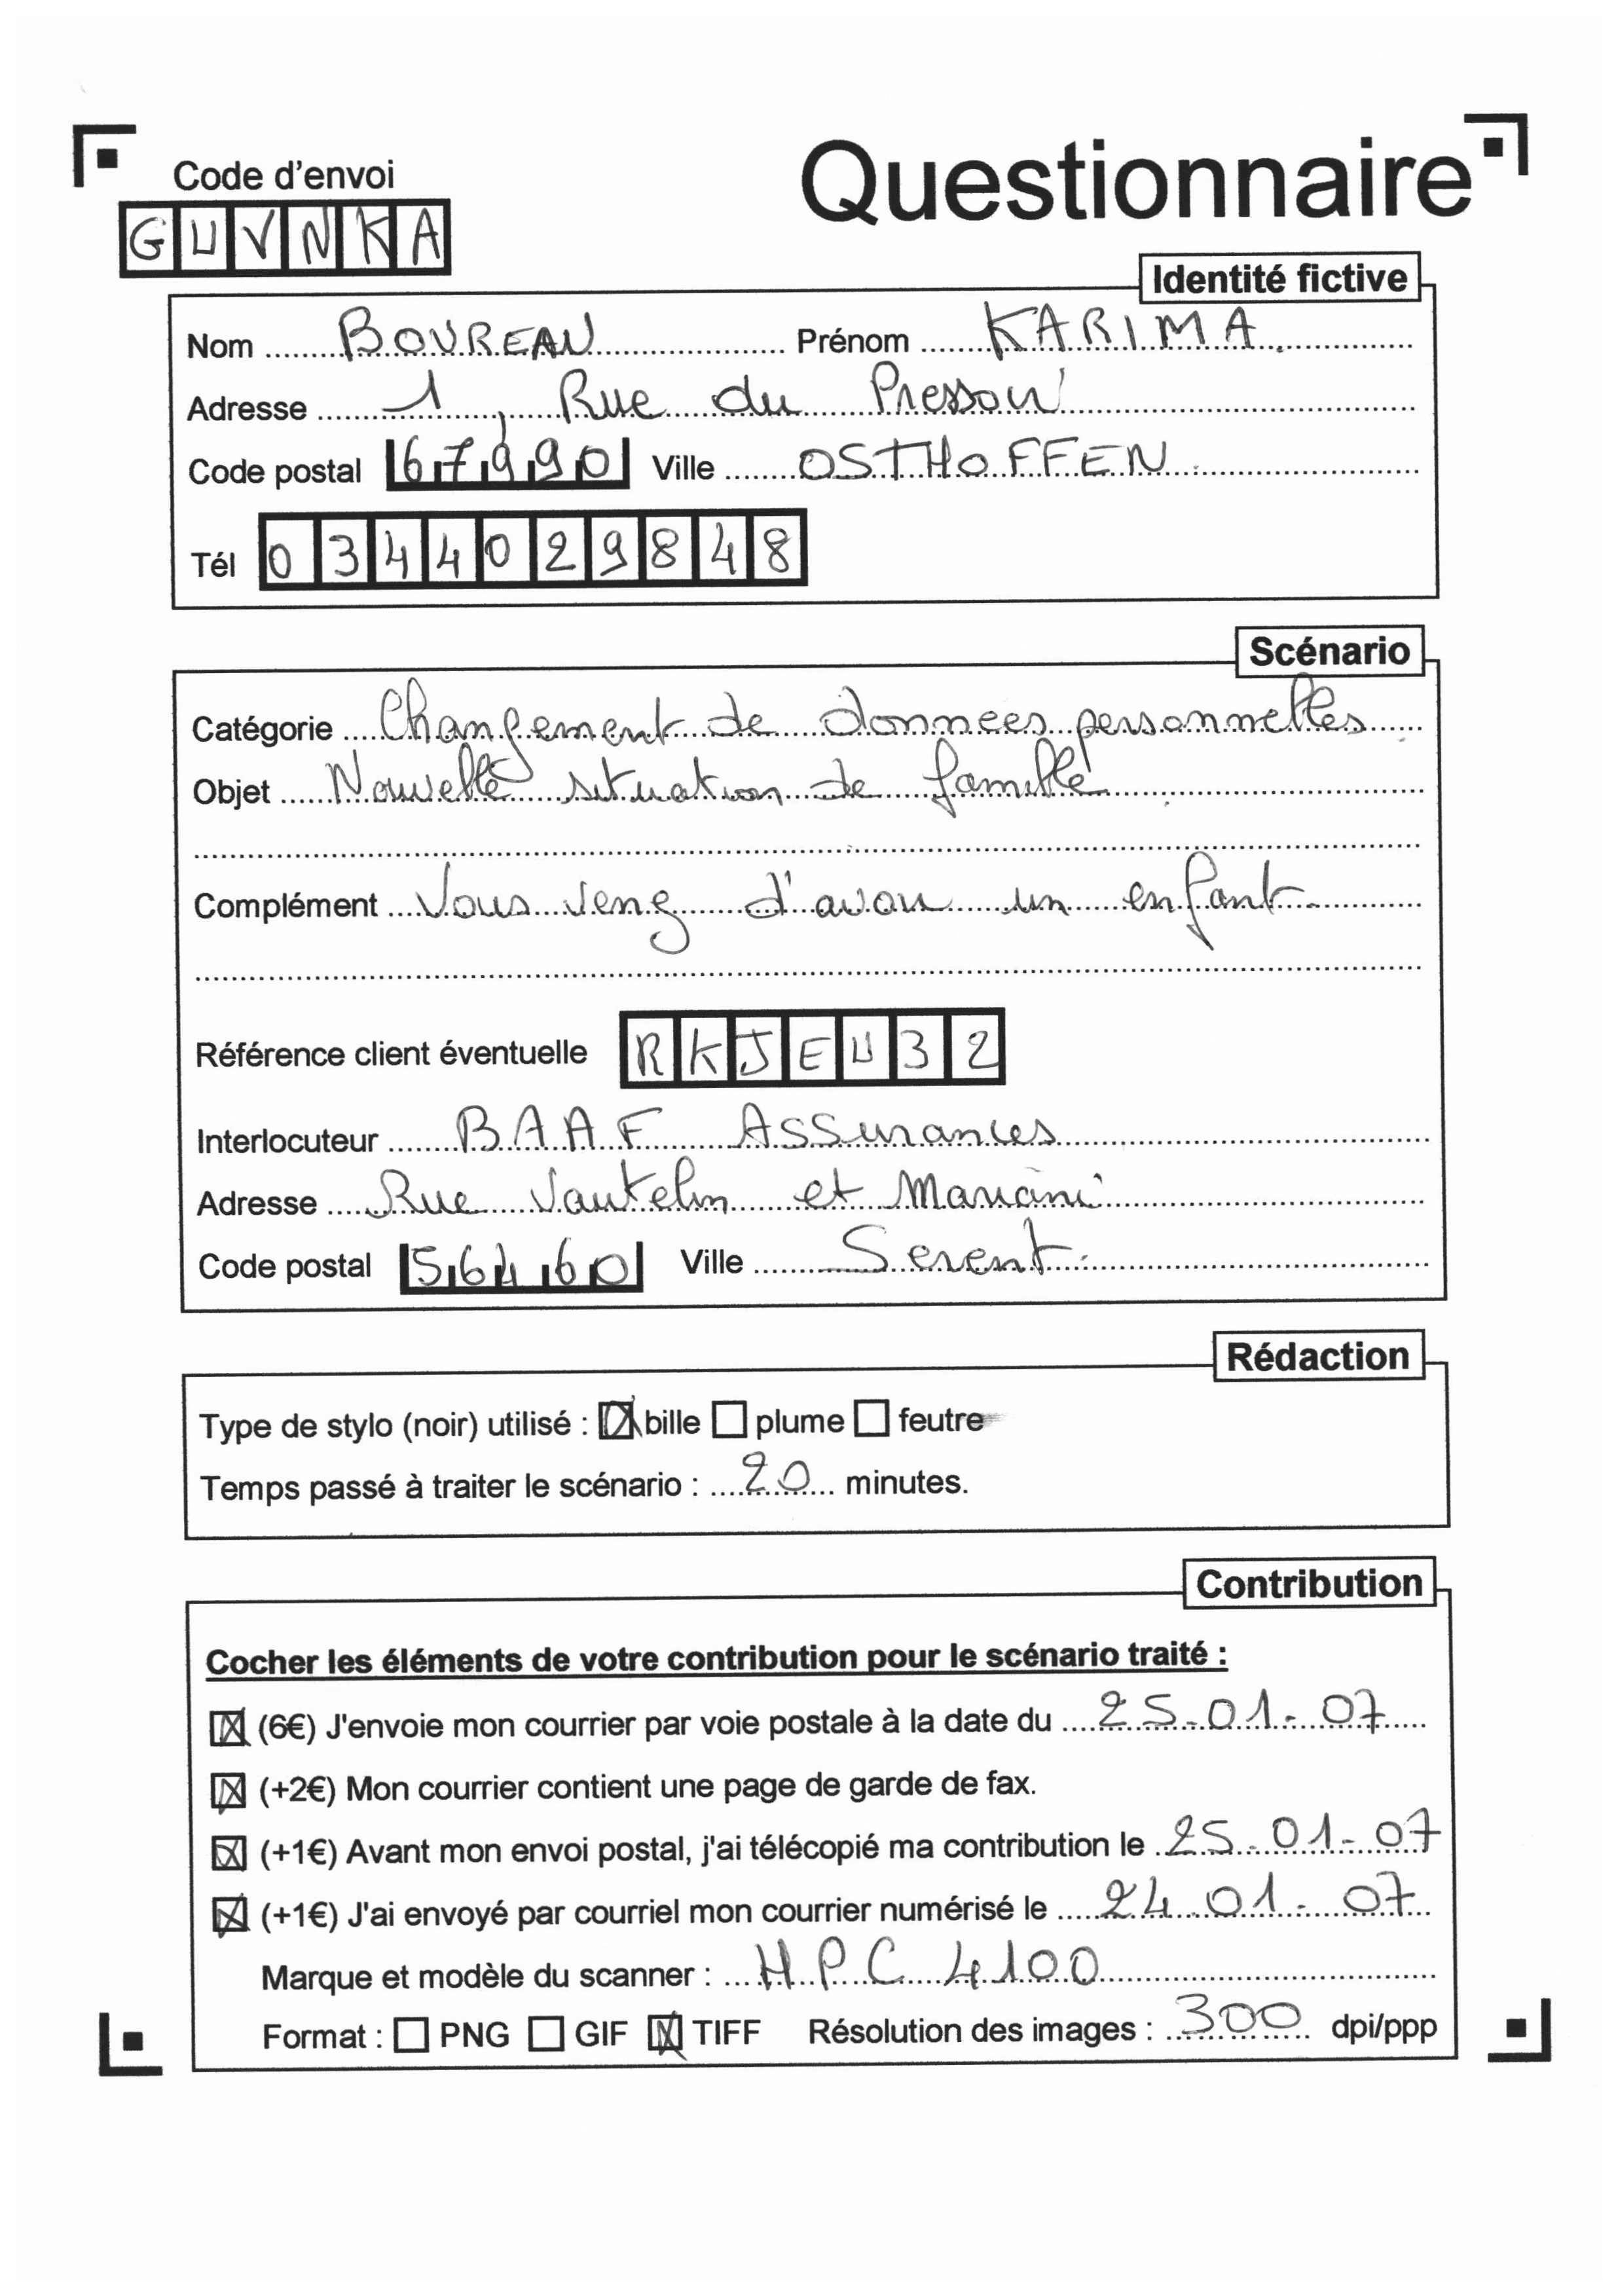 Code d'envoi
Questionnaire
GUVNKA
Identité fictive
Nom BOUREAU Prénom KARIMA
Adresse 1, Rue du Pressoir
Code postal 67990 Ville OSTHOFFEN
Tél 0344029848
Scénario
Catégorie Changement de données personnelles
Objet Nouvelle situation de famille
Complément Vous venez d'avoir un enfant.
Référence client éventuelle RKJEU32
Interlocuteur BAAF Assurances
Adresse Rue Vautelin et Mariani
Code postal 56460 Ville Serent.
Rédaction
Type de stylo (noir) utilisé : ☒ bille ☐ plume ☐ feutre
Temps passé à traiter le scénario : 20 minutes.
Contribution
Cocher les éléments de votre contribution pour le scénario traité :
☒ (6€) J'envoie mon courrier par voie postale à la date du 25.01.07
☒ (+2€) Mon courrier contient une page de garde de fax.
☒ (+1€) Avant mon envoi postal, j'ai télécopié ma contribution le 25.01.07
☒ (+1€) J'ai envoyé par courriel mon courrier numérisé le 24.01.07
Marque et modèle du scanner : HPC 4100
Format : ☐ PNG ☐ GIF ☒ TIFF Résolution des images : 300 dpi/ppp